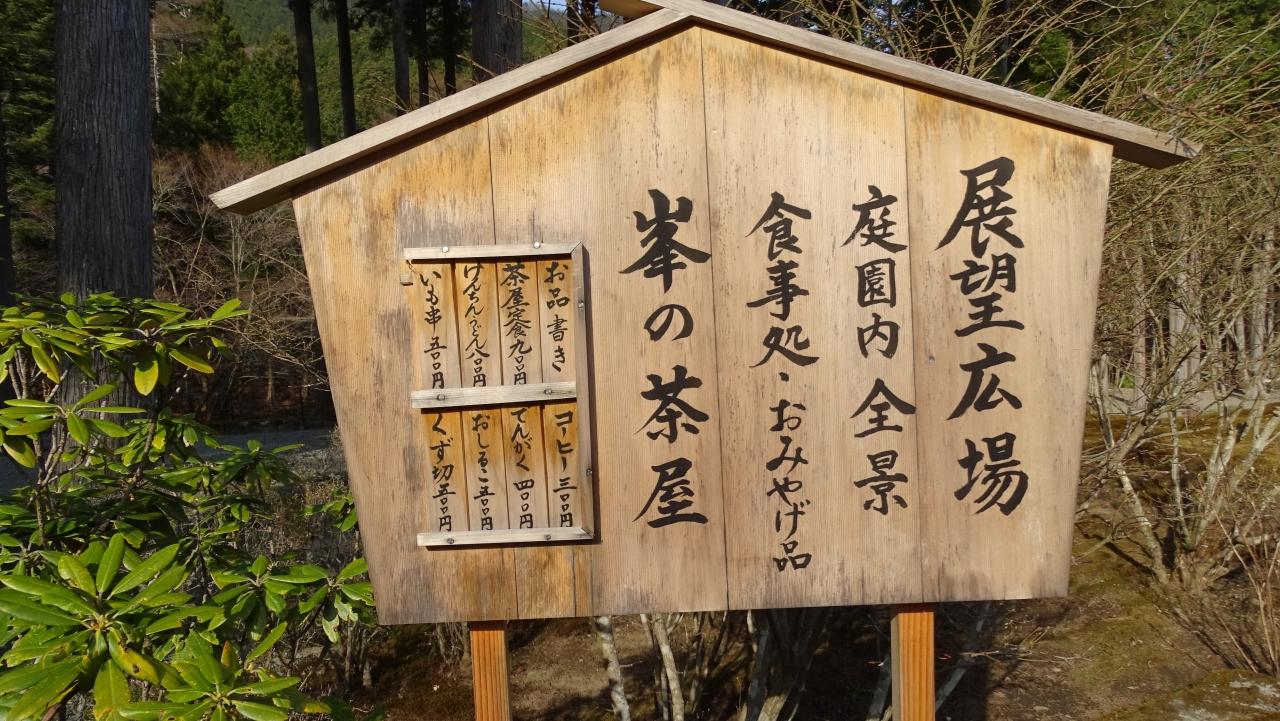 展望広場
庭園内全景
食事処・おみやげ品
峯の茶屋
お品書き
茶屋定食九〇〇円
けんちんうどん八〇〇円
いも串 五〇〇円
コーヒー 三〇〇円
でんがく 四〇〇円
おしるこ 五〇〇円
くず切 五〇〇円